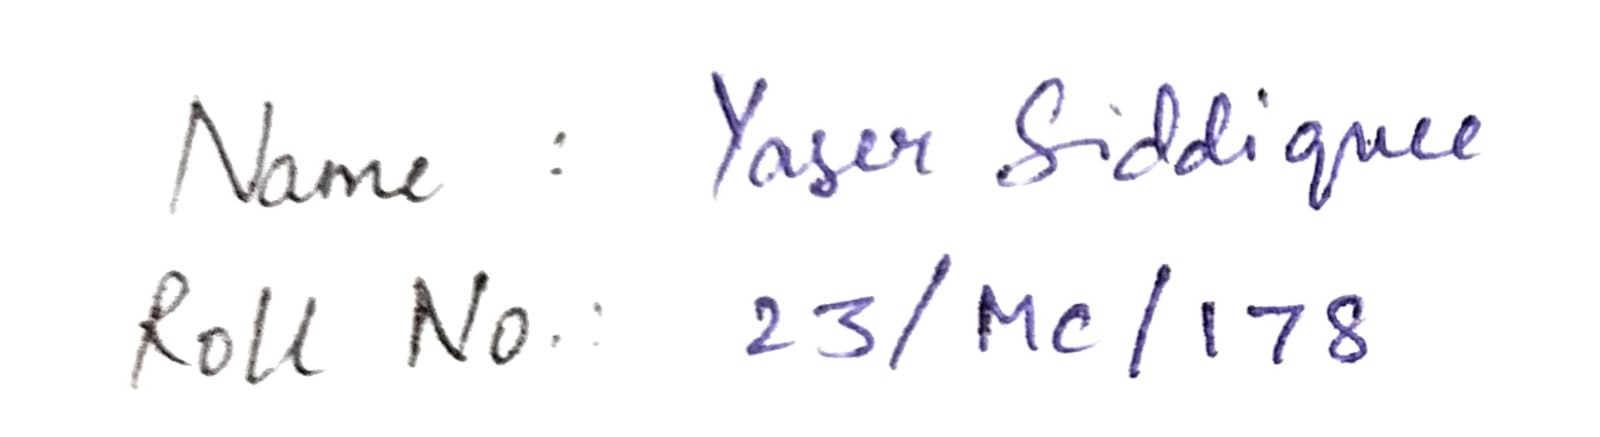 Name : Yaser Siddiquee
Roll No.: 23/MC/178